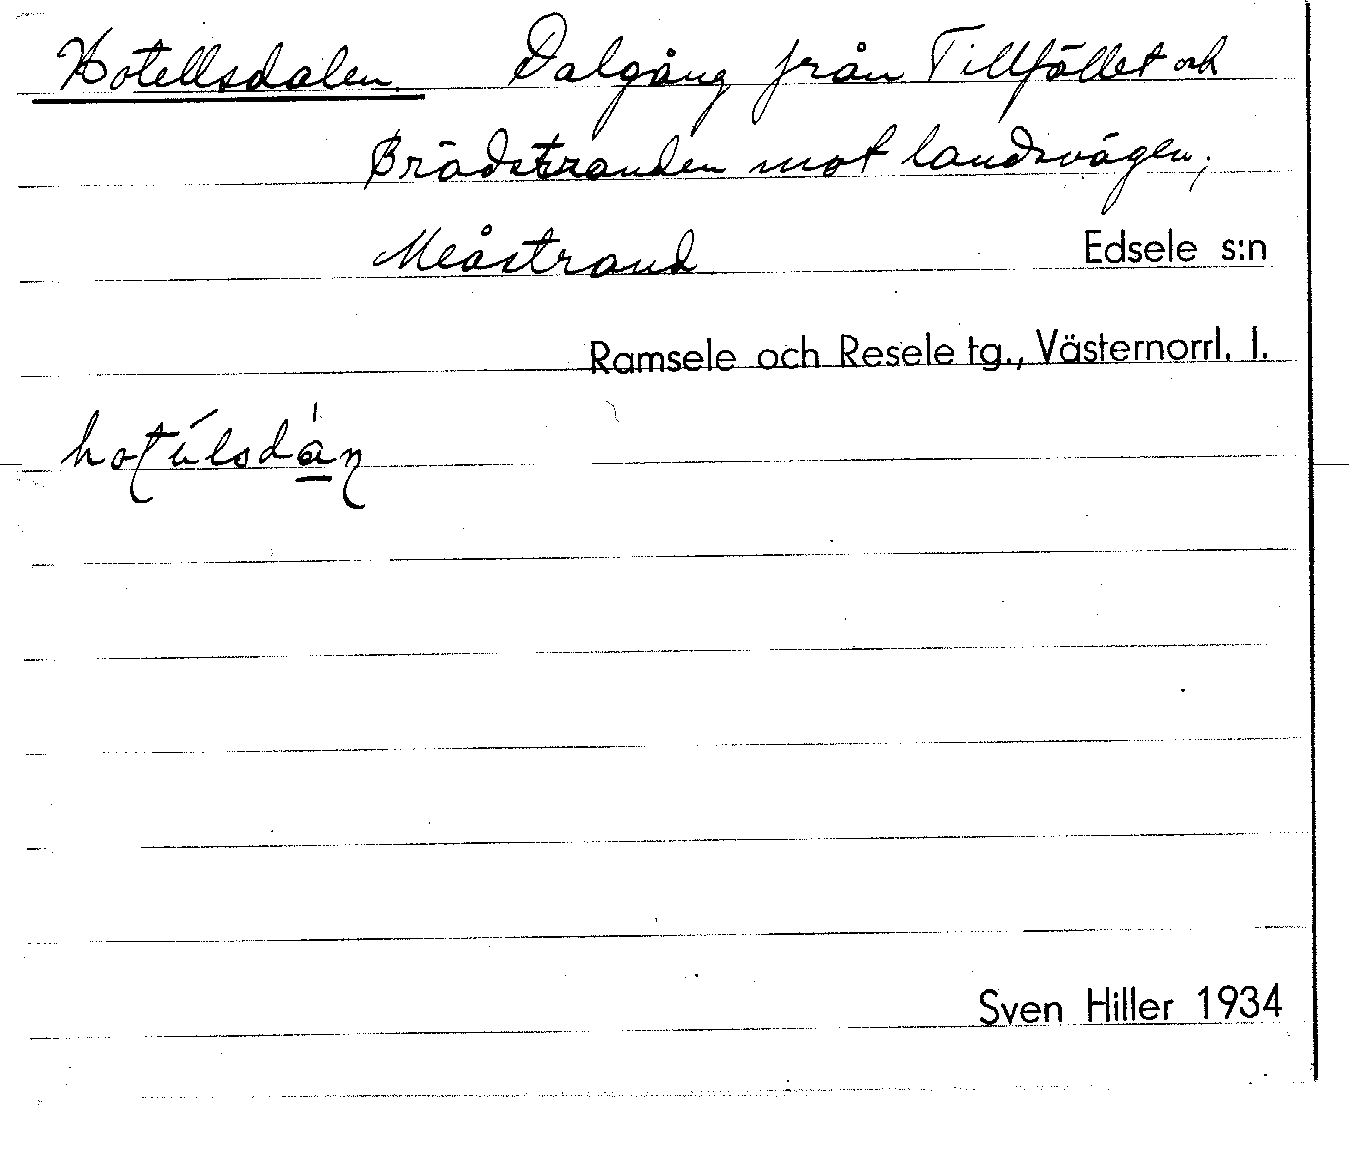 Hotellsdalen. Dalgång från Tillfället och
Brädstranden mot landsvägen,
Meåstrand Edsele s:n
Ramsele och Resele tg., Västernorrl. l.
Sven Hiller 1934